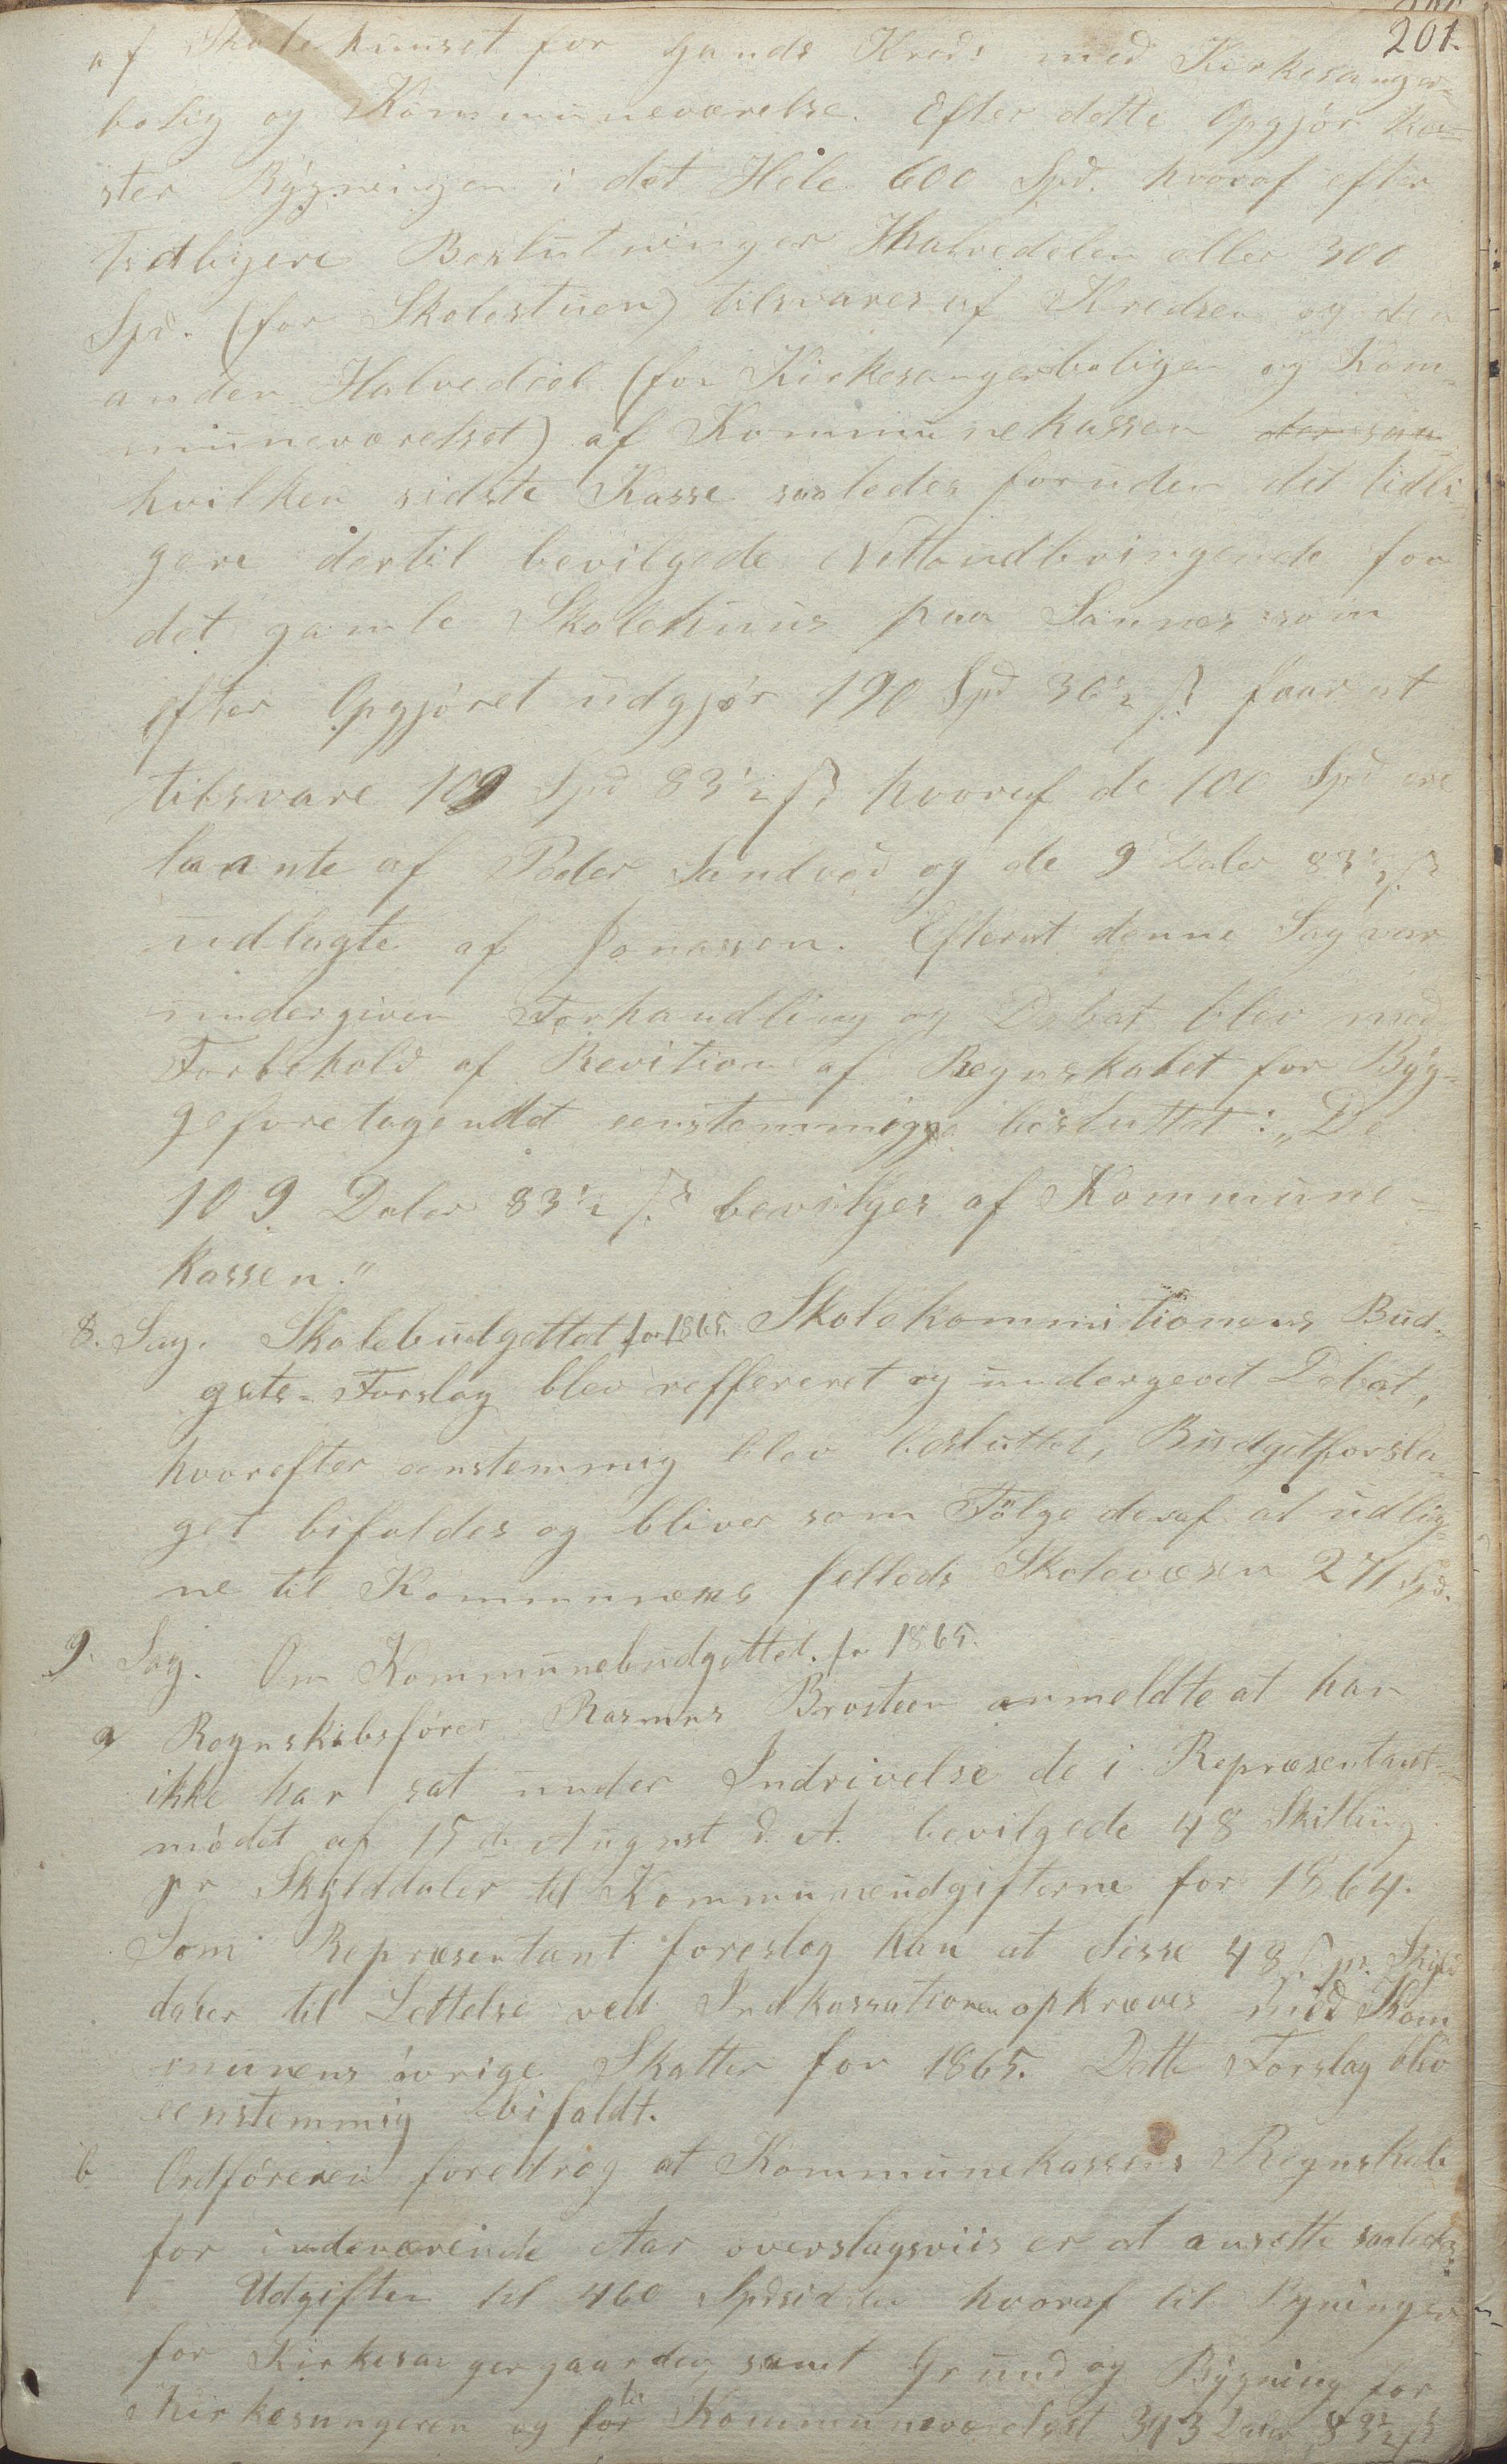 201.
af Skolehuuset for Gands Kreds med Kirkesanger-
bolig og Kommuneværelse. Efter dette Opgjör ko-
ster Bygningen i det Hele 600 Spd. hvoraf efter
tidligere Beslutninger Halvedelen eller 300
Spd. (for Skolestuen) tilsvares af Kredsen og den
anden Halvedeel (for Kirkesangerboligen og Kom-
muneværelset) af Kommunekassen
hvilken sidste Kasse saaledes foruden det tidli-
gere dertil bevilgede Nettoudbringende for
det gamle Skolehuus paa Sannes som
efter Opgjöret udgjör 190 Spd 36½ ß faar at
tilsvare 109 Spd 83½ ß hvoraf de 100 Spd ere
laante af Peder Sandved og de 9 Daler 83½ ß
udlagte af Jonassen. Efterat denne Sag var
undergiven Forhandling og Debat blev med
Forbehold af Revition af Regnskabet for Byg-
geforetagendet eenstemmig besluttet: „De
109 Daler 83½ ß bevilges af Kommune-
kassen."
8. Sag. Skolebudgettet for 1865. Skolekommitionens Bud-
gets-Forslag blev reffereret og undergivet Debat,
hvorefter eenstemmig blev besluttet, Budgetforsla-
get bifaldes og bliver som Fölge deraf at udlig-
ne til Kommunens felleds Skolevæsen 271 Spd.
9. Sag. Om Kommunebudgettet. for 1865.
a Regnskabsförer Rasmus Brosteen anmeldte at han
ikke har sat under Indrivelse de i Repræsentant-
mödet af 15de August d. A. bevilgede 48 Skilling
pr Skylddaler til Kommuneudgifterne for 1864.
Som Repræsentant foreslog han at disse 48 ß pr. Skyld
daler til Lettelse ved Indkassationen opkræves med Kom
munens övrige Skatter for 1865. Dette Forslag blev
eenstemmig bifaldt.
b Ordföreren foredrog at Kommunekassens Regnskab
for indeværende Aar overslagsviis er at ansætte saaledes:
Udgiften til 460 hvoraf til Bygninger
for Kirkesangergaarden samt Grund og Bygning for
Kirkesangeren og for til Kommuneværelset 393 Daler 83½ ß